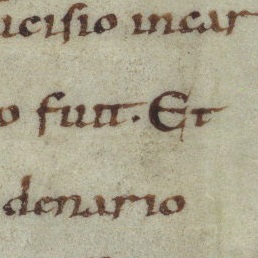 cisio incar
o fuit. Et
denario